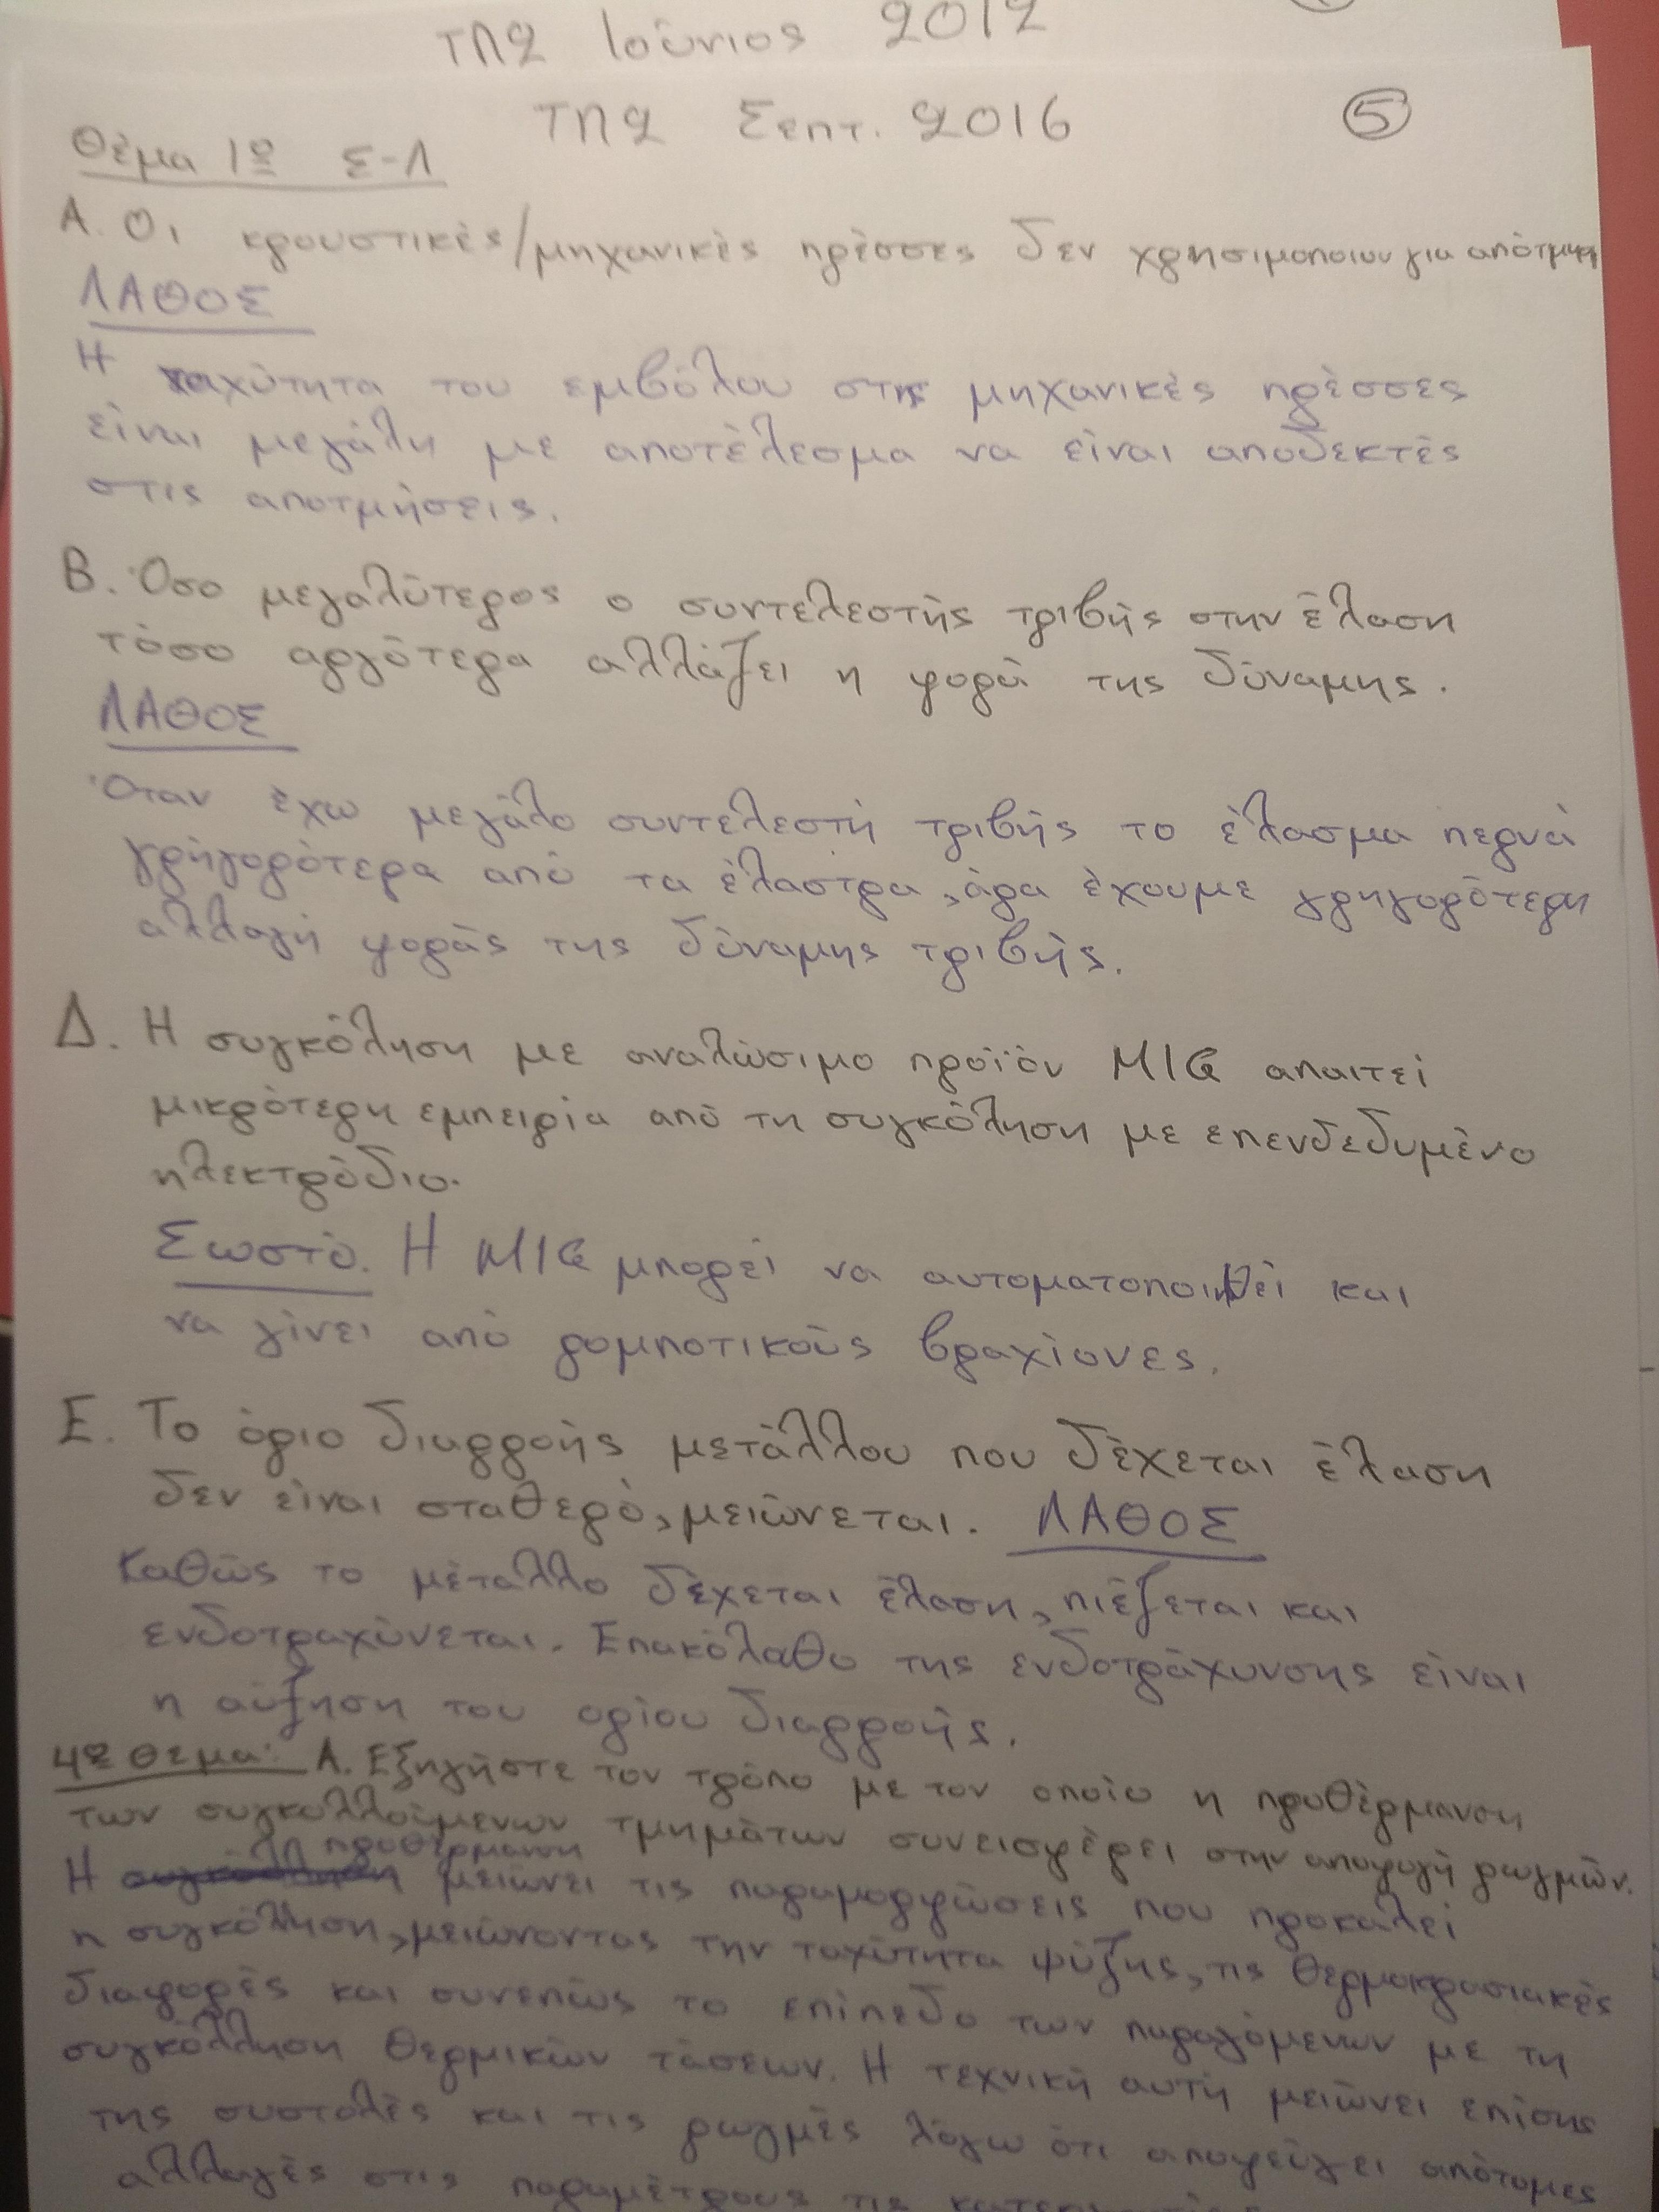 ΤΠ2 Ιούνιος 2012
ΤΠ2 Σεπτ. 2016 5
Θέμα 1º Σ-Λ
Α. Οι κρουστικές/μηχανικές πρέσσες δεν χρησιμοποιουν για απότμηση
ΛΑΘΟΣ
Η ταχύτητα του εμβόλου στις μηχανικές πρέσσες
είναι μεγάλη με αποτέλεσμα να είναι αποδεκτές
στις αποτμήσεις.
Β. Όσο μεγαλύτερος ο συντελεστής τριβής στην έλαση
τόσο αργότερα αλλάζει η φορά της δύναμης.
ΛΑΘΟΣ
Όταν έχω μεγάλο συντελεστή τριβής το έλασμα περνά
γρήγορότερα από τα έλαστρα, άρα έχουμε γρηγορότερη
αλλαγή φοράς της δύναμης τριβής.
Δ. Η συγκόληση με αναλώσιμο προϊόν MIG απαιτεί
μικρότερη εμπειρία από τη συγκόληση με επενδεδυμένο
ηλεκτρόδιο.
Σωστό. Η MIG μπορεί να αυτοματοποιηθεί και
να γίνει από ρομποτικούς βραχίονες.
Ε. Το όριο διαρροής μετάλλου που δέχεται έλαση
δεν είναι σταθερό, μειώνεται. ΛΑΘΟΣ
Καθώς το μέταλλο δέχεται έλαση, πιέζεται και
ενδοτραχύνεται. Επακόλαθο της ενδοτράχυνσης είναι
η αύξηση του ορίου διαρροής.
4º θεμα: Α. Εξηγήστε τον τρόπο με τον οποίο η προθέρμανση
των συγκολλούμενων τμημάτων συνεισφέρει στην αποφυγή ρωγμών.
Η προθέρμανση μειώνει τις παραμορφώσεις που προκαλεί
η συγκόλληση, μειώνοντας την ταχύτητα ψύξης, τις θερμοκρασιακές
διαφορές και συνεπώς το επίπεδο των παραγόμενων με τη
συγκόλληση θερμικών τάσεων. Η τεχνική αυτή μειώνει επίσης
της συστολές και τις ρωγμές λόγω ότι αποφεύγει απότομες
αλλαγές στις παραμέτρους της